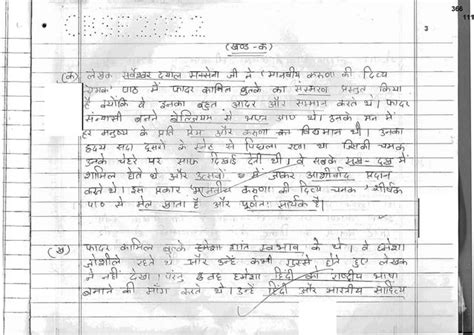 366
111
CBSE 2022
3
(खण्ड-क)
(क) लेखक सर्वेश्वर दयाल सक्सेना जी ने 'मानवीय करुणा की दिव्य
चमक' पाठ में फादर कामिल बुल्के का संस्मरण प्रस्तुत किया
है क्योंकि वे उनका बहुत आदर और सम्मान करते थे। फादर
संन्यासी बनने बेल्जियम से भारत आए थे। उनके मन में
हर मनुष्य के प्रति प्रेम और करुणा का विद्यमान थी। उनका
हृदय सदा दूसरों के स्नेह से पिघला रहा था जिसकी चमक
उनके चेहरे पर साफ दिखाई देती थी। वे सबके सुख-दुख में
शामिल होते थे और उत्सवों में जाकर आशीर्वाद प्रदान
करते थे। इस प्रकार 'मानवीय करुणा की दिव्य चमक' शीर्षक
पाठ से मेल खाता है और पूर्णतः सार्थक है।
(ख) फादर कामिल बुल्के हमेशा शांत स्वभाव के थे। वे हमेशा
जोशीले रहते थे और उन्हें कभी गुस्से होते हुए लेखक
ने नहीं देखा। परंतु वह हमेशा हिंदी को राष्ट्रीय भाषा
बनाने की माँग करते थे। उन्हें हिंदी और भारतीय साहित्य